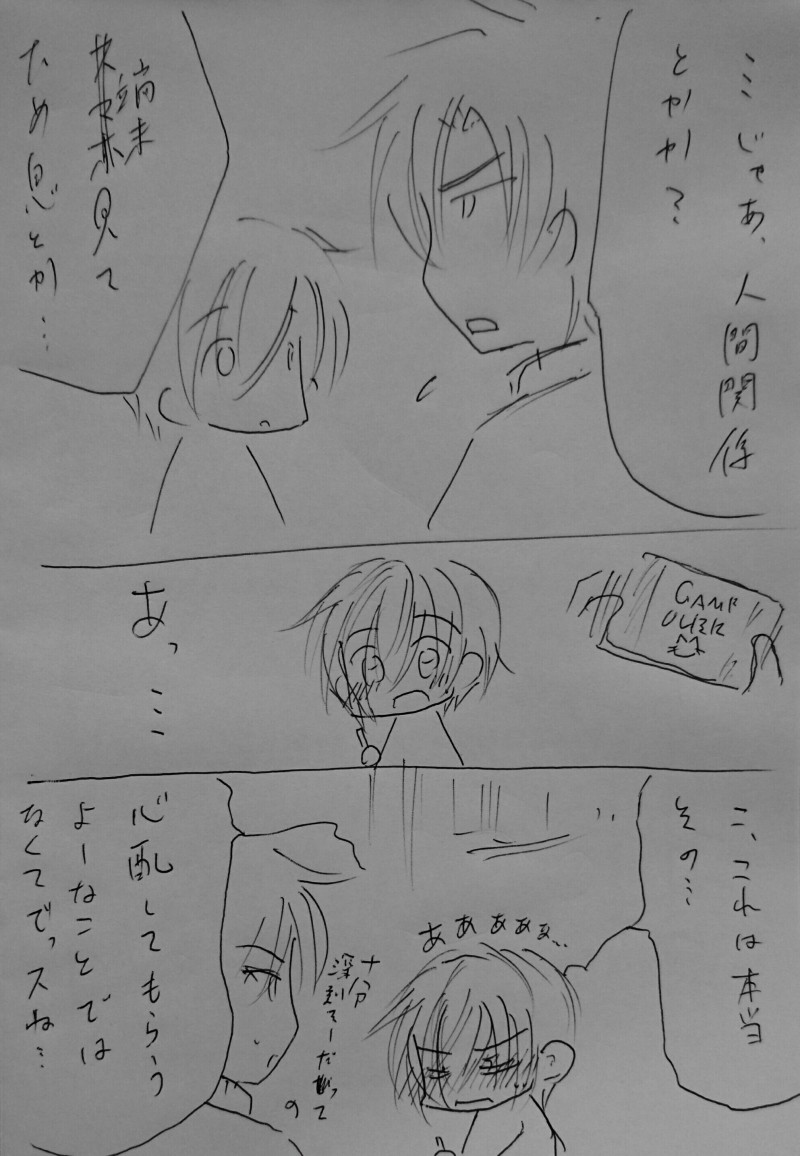 …じゃあ、人間関係
とかか?
端末
見て
ため息とか…
GAME
OVER
あっ…
こ、これは本当
その…
ああぁぁぁ…
心配してもらう
よーなことでは
なくてでっスね…
十分